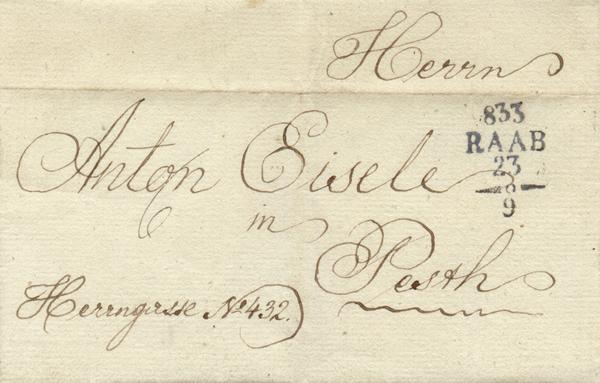 Herrn
Anton Eisele
in
Pesth
Herrngasse No 432.
833
RAAB
23
8
9